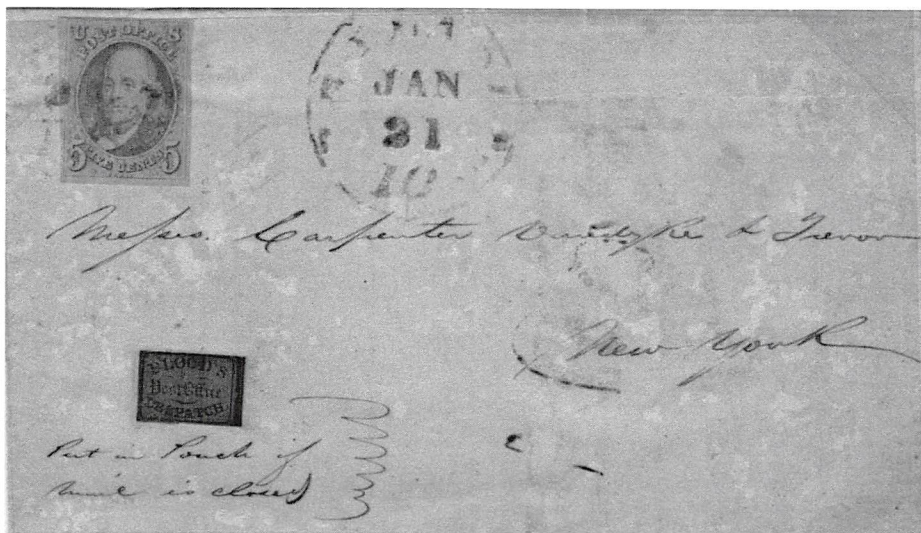 U S
POST OFFICE
5 FIVE CENTS 5
JAN
31
10
Messrs. Carpenter Vandyke & Trevor
New York
BLOOD'S
Post Office
DESPATCH
Put in Pouch if
mail is closed